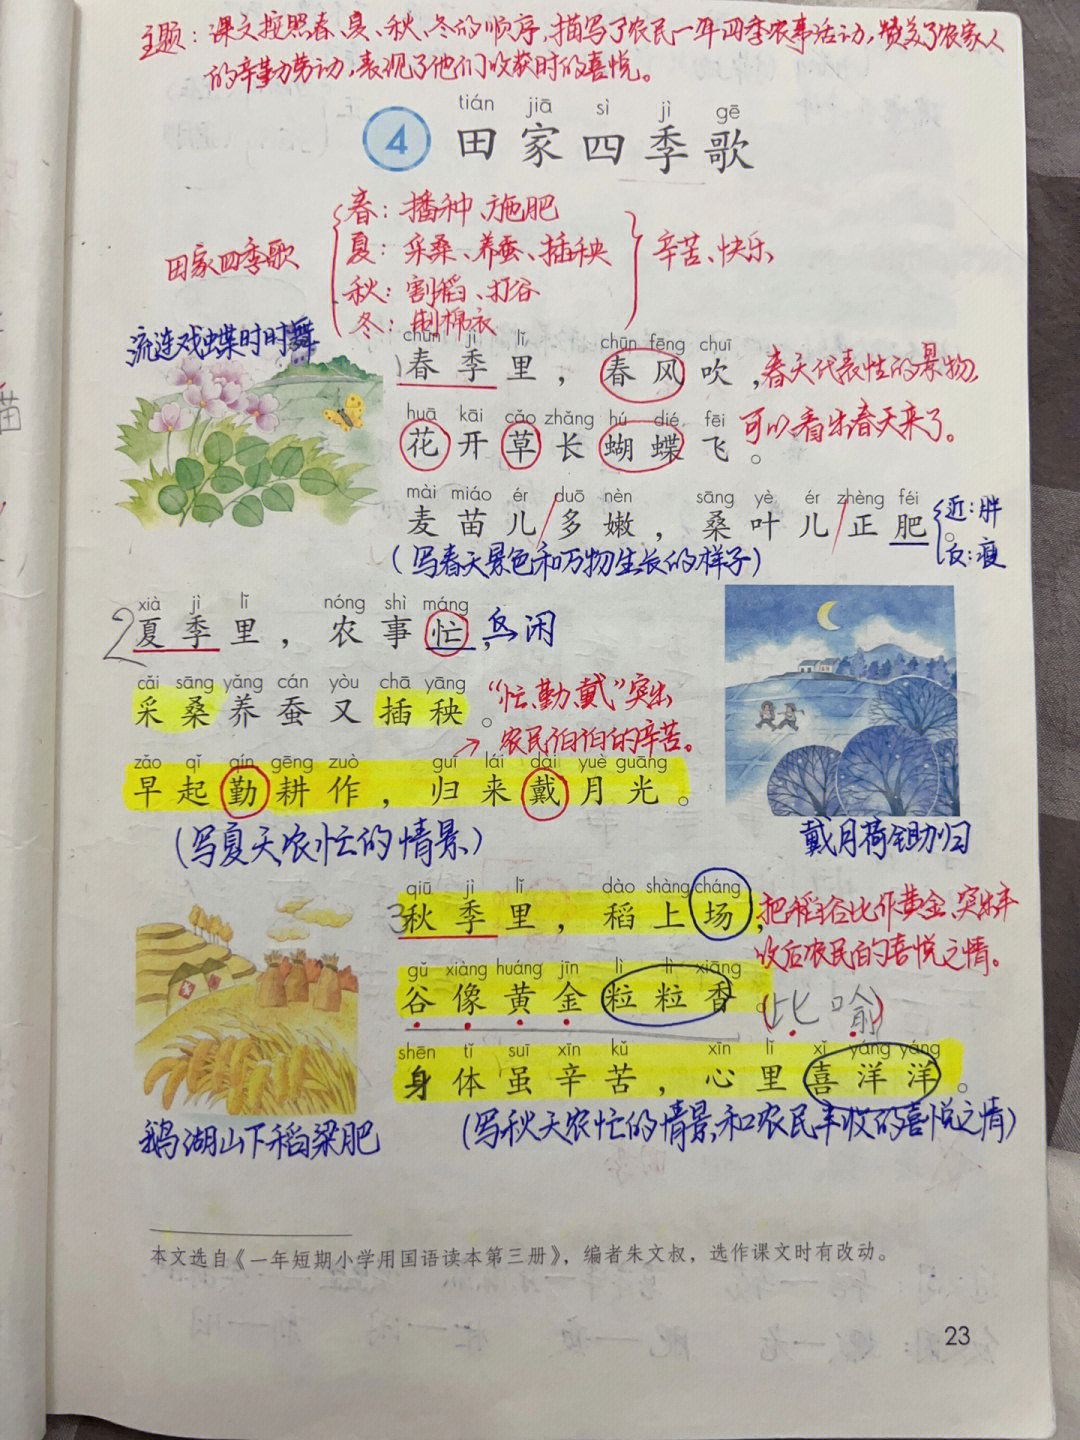 主题：课文按照春、夏、秋、冬的顺序，描写了农民一年四季农事活动，赞美了农家人
的辛勤劳动，表现了他们收获时的喜悦。
tián jiā sì jì gē
4 田家四季歌
田家四季歌
春：播种、施肥
夏：采桑、养蚕、插秧
秋：割稻、打谷
冬：制棉衣
辛苦、快乐
流连戏蝶时时舞
chūn jì lǐ chūn fēng chuī
1 春季里，春风吹，
春天代表性的景物，
huā kāi cǎo zhǎng hú dié fēi
花开草长蝴蝶飞。
可以看出春天来了。
mài miáo ér duō nèn sāng yè ér zhèng féi
麦苗儿/多嫩，桑叶儿/正肥。
近：胖
反：瘦
（写春天景色和万物生长的样子）
xià jì lǐ nóng shì máng
2 夏季里，农事忙，
反：闲
cǎi sāng yǎng cán yòu chā yāng
采桑养蚕又插秧。
“忙、勤、戴”突出
→农民伯伯的辛苦。
zǎo qǐ qín gēng zuò guī lái dài yuè guāng
早起勤耕作，归来戴月光。
（写夏天农忙的情景）
戴月荷锄归
qiū jì lǐ dào shàng cháng
3 秋季里，稻上场，
把稻谷比作黄金，突出丰
收后农民伯的喜悦之情。
gǔ xiàng huáng jīn lì lì xiāng
谷像黄金粒粒香。
（比喻）
shēn tǐ suī xīn kǔ xīn lǐ xǐ yáng yáng
身体虽辛苦，心里喜洋洋。
鹅湖山下稻粱肥
（写秋天农忙的情景，和农民丰收的喜悦之情）
本文选自《一年短期小学用国语读本第三册》，编者朱文叔，选作课文时有改动。
23